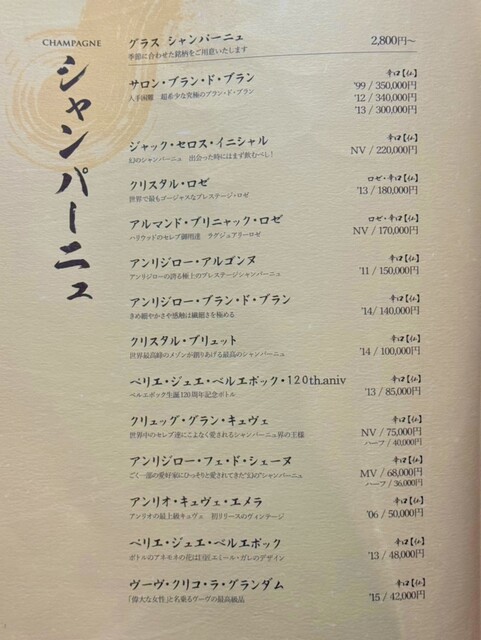 CHAMPAGNE
シャンパーニュ
グラス シャンパーニュ 2,800円〜
季節に合わせた銘柄をご用意いたします
サロン・ブラン・ド・ブラン 辛口【仏】
入手困難 超希少な究極のブラン・ド・ブラン '99 / 350,000円
'12 / 340,000円
'13 / 300,000円
ジャック・セロス・イニシャル 辛口【仏】
幻のシャンパーニュ 出会った時にはまず飲むべし! NV / 220,000円
クリスタル・ロゼ ロゼ・辛口【仏】
世界で最もゴージャスなプレステージ・ロゼ '13 / 180,000円
アルマンド・ブリニャック・ロゼ ロゼ・辛口【仏】
ハリウッドのセレブ御用達 ラグジュアリーロゼ NV / 170,000円
アンリジロー・アルゴンヌ 辛口【仏】
アンリジローの誇る極上のプレステージシャンパーニュ '11 / 150,000円
アンリジロー・ブラン・ド・ブラン 辛口【仏】
きめ細やかさや感触は繊細さを極める '14 / 140,000円
クリスタル・ブリュット 辛口【仏】
世界最高峰のメゾンが創りあげる最高のシャンパーニュ '14 / 100,000円
ベリエ・ジュエ・ベルエポック・120th.aniv 辛口【仏】
ベルエポック生誕120周年記念ボトル '13 / 85,000円
クリュッグ・グラン・キュヴェ 辛口【仏】
世界中のセレブ達にこよなく愛されるシャンパーニュ界の王様 NV / 75,000円
ハーフ / 40,000円
アンリジロー・フュ・ド・シェーヌ 辛口【仏】
ごく一部の愛好家にひっそりと愛されてきた"幻の"シャンパーニュ MV / 68,000円
ハーフ / 36,000円
アンリオ・キュヴェ・エメラ 辛口【仏】
アンリオの最上級キュヴェ 初リリースのヴィンテージ '06 / 50,000円
ベリエ・ジュエ・ベルエポック 辛口【仏】
ボトルのアネモネの花は巨匠エミール・ガレのデザイン '13 / 48,000円
ヴーヴ・クリコ・ラ・グランダム 辛口【仏】
「偉大な女性」と名乗るヴーヴの最高級品 '15 / 42,000円